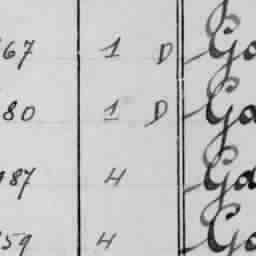 67 1 D Ga
80 1 D Ga
187 4 Ga
59 4 Ga